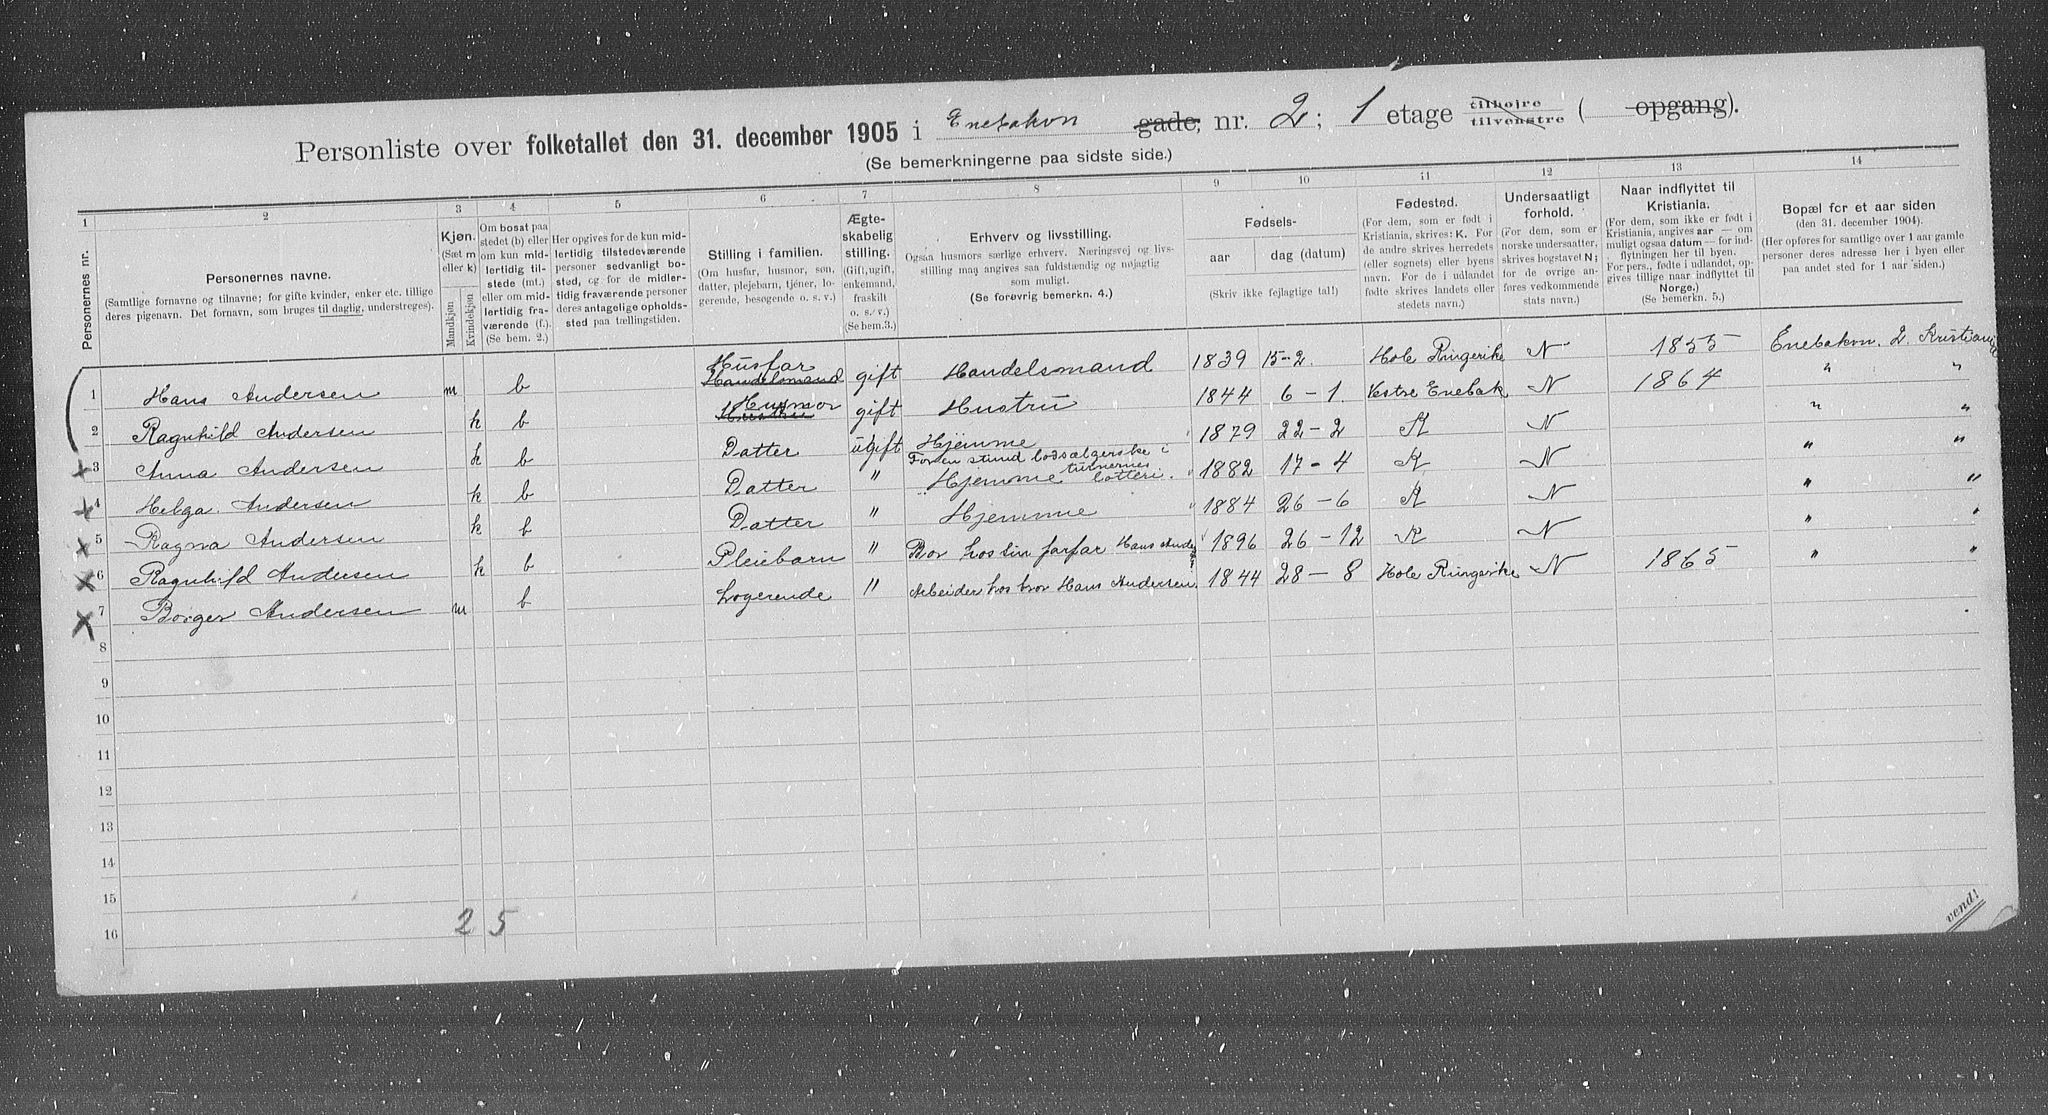 Personliste over folketallet den 31. december 1905 i Enebakvn gade, nr. 2; 1 etage tilhøjre tilvenstre ( opgang).
(Se bemerkningerne paa sidste side.)
1 2 3 4 5 6 7 8 9 10 11 12 13 14
Personernes nr.
Personernes navne.
(Samtlige fornavne og tilnavne; for gifte kvinder, enker etc. tillige
deres pigenavn. Det fornavn, som bruges til daglig, understreges).
Kjøn.
(Sæt m
eller k)
Mandkjøn
Kvindekjøn
Om bosat paa
stedet (b) eller
om kun mid-
lertidig til-
stede (mt.)
eller om mid-
lertidig fra-
værende (f.).
(Se bem. 2.)
Her opgives for de kun mid-
lertidig tilstedeværende
personer sedvanligt bo-
sted, og for de midler-
tidig fraværende personer
deres antagelige opholds-
sted paa tællingstiden.
Stilling i familien.
(Om husfar, husmor, søn,
datter, plejebarn, tjener, lo-
gerende, besøgende o. s. v.)
Ægte-
skabelig
stilling.
(Gift, ugift,
enkemand,
fraskilt
o. s. v.)
(Se bem.3.)
Erhverv og livsstilling.
Ogsaa husmors særlige erhverv. Næringsvej og livs-
stilling maa angives saa fuldstændig og nøjagtig
som muligt.
(Se forøvrig bemerkn. 4.)
Fødsels-
aar dag (datum)
(Skriv ikke fejlagtige tal!)
Fødested.
(For dem, som er født i
Kristiania, skrives: K. For
de andre skrives herredets
(eller sognets) eller byens
navn. For de i udlandet
fødte skrives landets eller
stedets navn.)
Undersaatligt
forhold.
(For dem, som er
norske undersaatter,
skrives bogstavet N;
for de øvrige an-
føres vedkommende
stats navn.)
Naar indflyttet til
Kristiania.
(For dem, som ikke er født i
Kristiania, angives aar — om
muligt ogsaa datum — for ind-
flytningen her til byen.
For pers., fødte i udlandet, op-
gives tillige naar indflyttet til
Norge.)
(Se bemerkn. 5.)
Bopæl for et aar siden
(den 31. december 1904).
(Her opføres for samtlige over 1 aar gamle
personer deres adresse her i byen eller
paa andet sted for 1 aar siden.)
1 Hans Andersen m b Husfar Handelsmand gift Handelsmand 1839 15-2. Hole Ringerike N 1855 Enebakvn. 2. Kristiania
2 Ragnhild Andersen k b Husmor Hustru gift Hustru 1844 6-1. Vestre Enebak N 1864 " "
3 Anna Andersen k b Datter ugift Hjemme 1879 22-2 K N " "
4 Helga Andersen k b Datter " For en stund lodsælgerske i turnernes lotteri. Hjemme 1882 17-4 K N " "
5 Ragna Andersen k b Datter " Hjemme 1884 26-6 K N " "
6 Ragnhild Andersen k b Pleiebarn " Bor hos sin farfar Hans Anders 1896 26-12 K N " "
7 Borger Andersen m b Logerende " Arbeider hos bror Hans Andersen. 1844 28-8 Hole Ringerike N 1865 " "
8
9
10
11
12
13
14
15
16
2 5
vend!